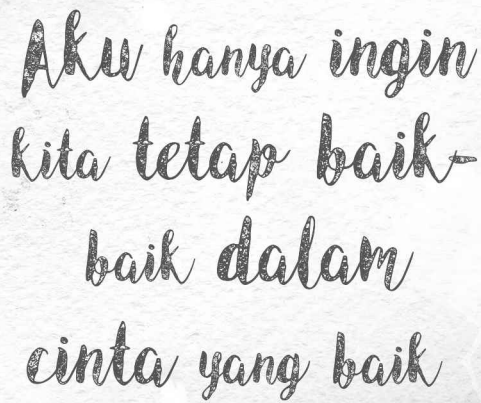 Aku hanya ingin
kita tetap baik-
baik dalam
cinta yang baik